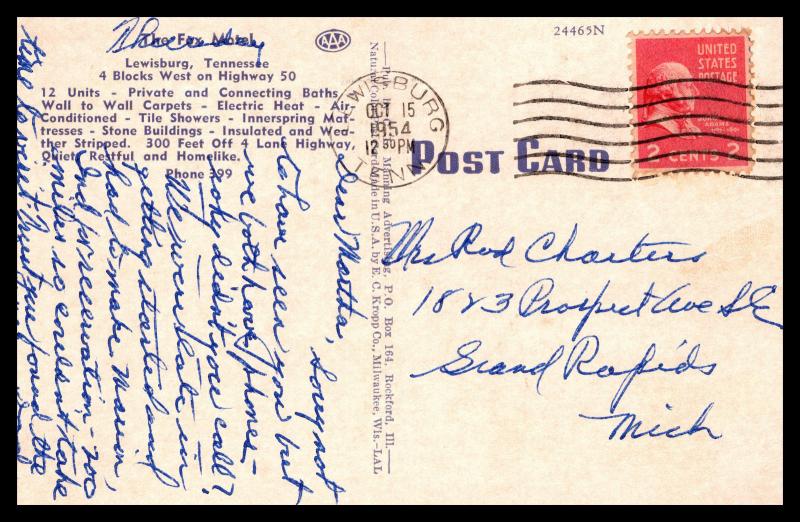 The Fox Motel
Lewisburg, Tennessee
4 Blocks West on Highway 50
12 Units - Private and Connecting Baths
Wall to Wall Carpets - Electric Heat - Air-
Conditioned - Tile Showers - Innerspring Mat-
tresses - Stone Buildings - Insulated and Wea-
ther Stripped. 300 Feet Off 4 Lane Highway,
Quiet, Restful and Homelike.
Phone 399
AAA
Dear Martha,
Sorry not
to have seen you but
we both have phones -
why didn't you call?
We were late in
getting started and
had to make Marion,
Ind for reservation - 700
miles so couldn't take
time to visit. Trust you found the
Manning Advertising, P.O. Box 164, Rockford, Ill.
Made in U.S.A. by E. C. Kropp Co., Milwaukee, Wis.-LAL
24465N
LEWISBURG
OCT 15
1954
12 30PM
TENN
UNITED
STATES
POSTAGE
ADAMS
2 CENTS 2
POST CARD
Mrs Rod Charters
1823 Prospect Ave S.E
Grand Rapids
Mich